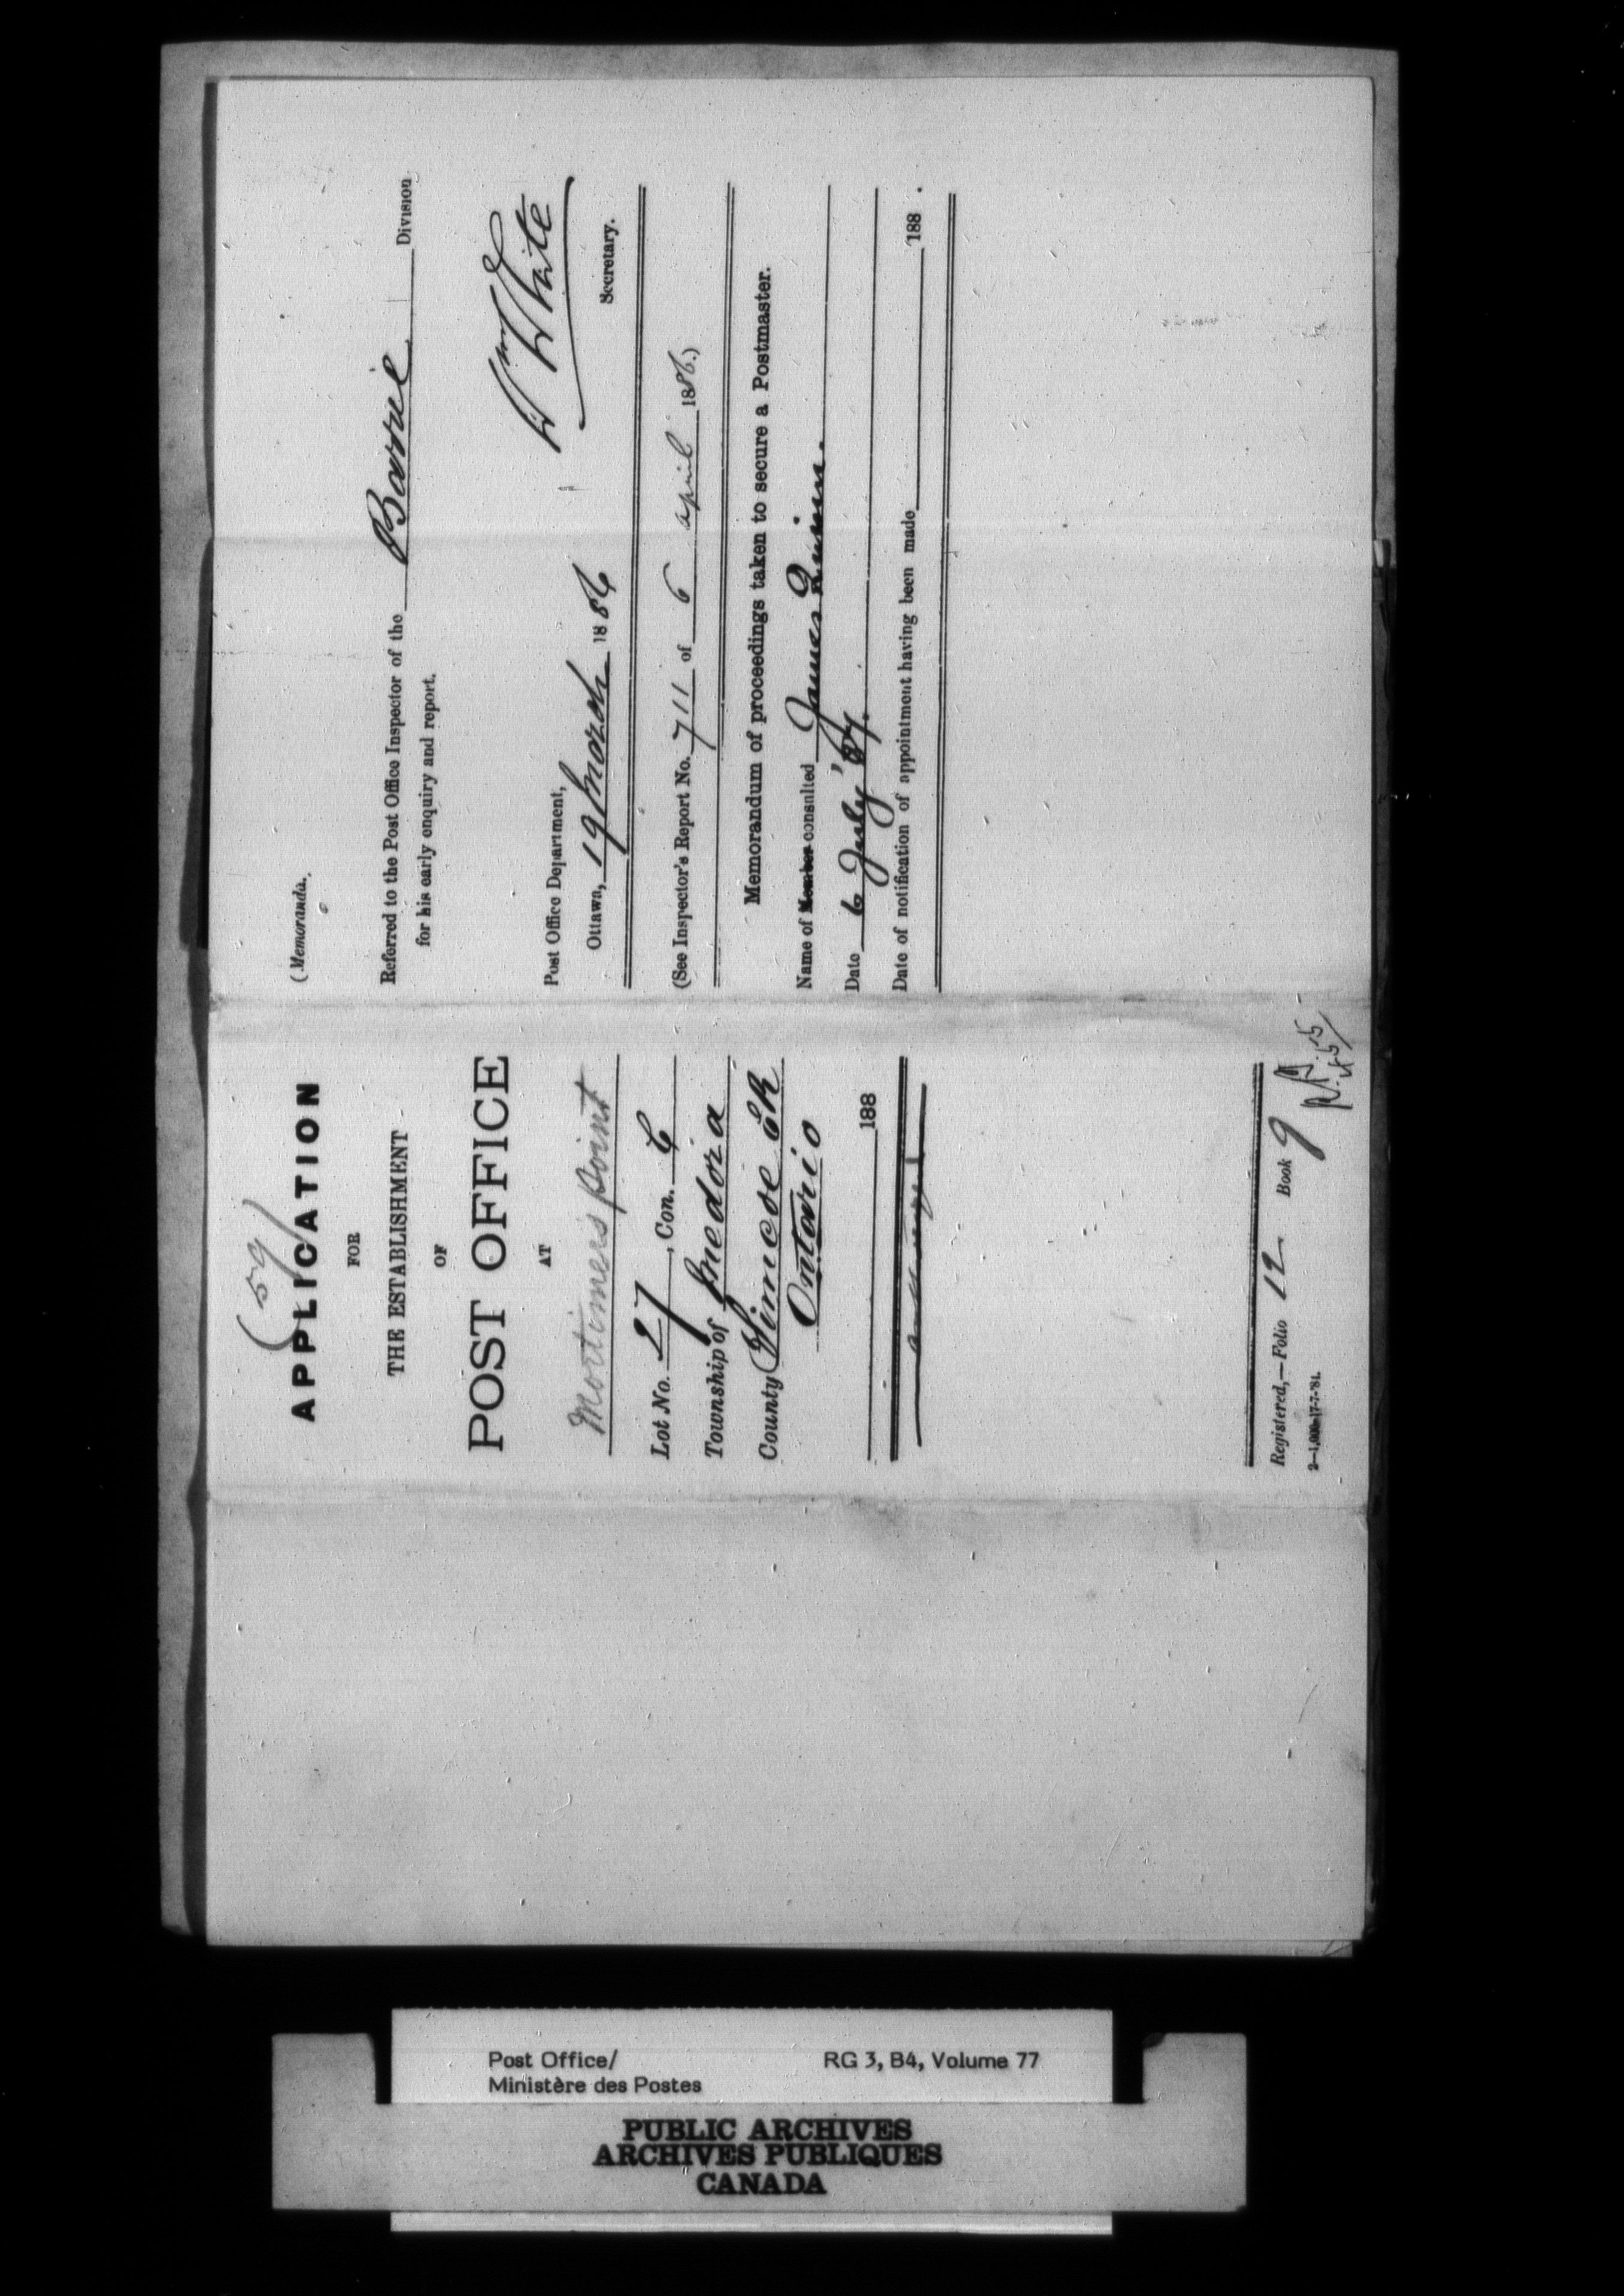 (59)
APPLICATION
FOR
THE ESTABLISHMENT
OF
POST OFFICE
AT
Mortimer's Point
Lot No. 27, Con. 6
Township of Medora
County Simcoe NR
Ontario
188
Registered,—Folio 12 Book 9
2—1,000-17-7-'84.
(Memoranda.
Referred to the Post Office Inspector of the Barrie Division
for his early enquiry and report.
Wm White
Secretary.
Post Office Department,
Ottawa, 19 March 1886
(See Inspector's Report No. 711 of 6 April 1886.)
Memorandum of proceedings taken to secure a Postmaster.
Name of Member consulted James Quinn.
Date 6 July '87.
Date of notification of appointment having been made 188 .
Post Office/ RG 3, B4, Volume 77
Ministère des Postes
PUBLIC ARCHIVES
ARCHIVES PUBLIQUES
CANADA